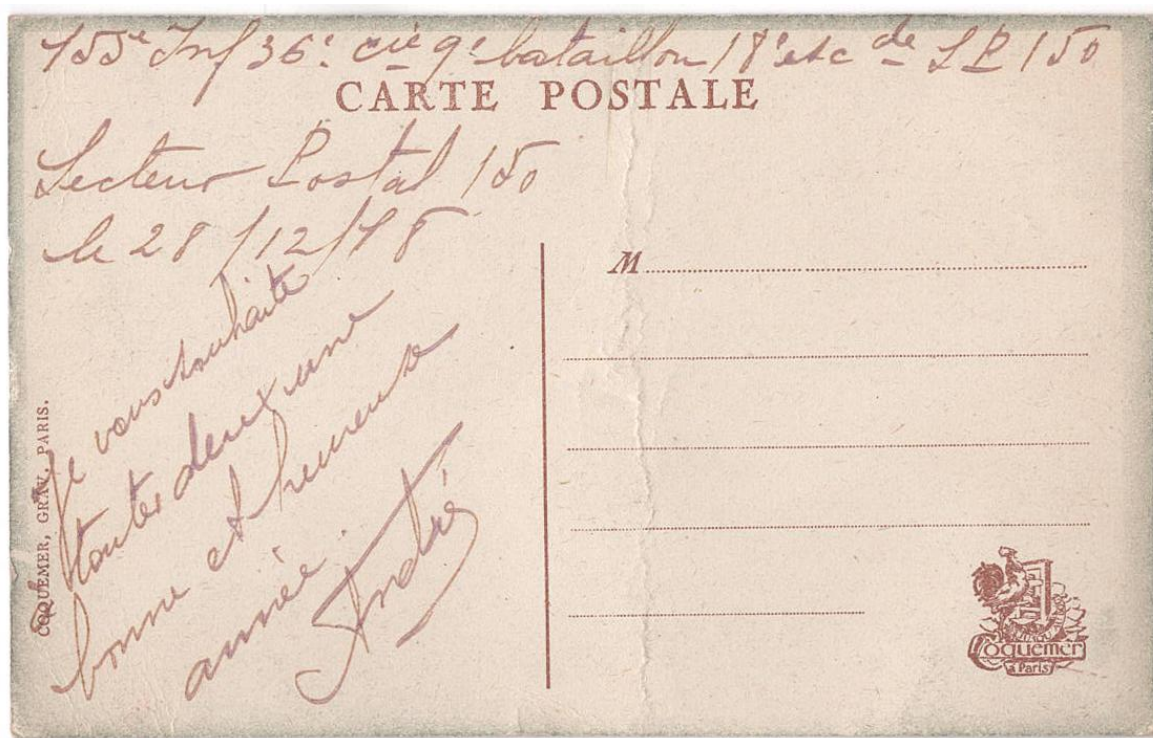 155e Inf 36e cie 9e bataillon 18e esc de SP 150
CARTE POSTALE
Secteur Postal 150
le 28/12/18
Je vous souhaite
à toutes deux une
bonne et heureuse
année.
André
COQUEMER, GRAV. PARIS.
M
Coquemer
à Paris